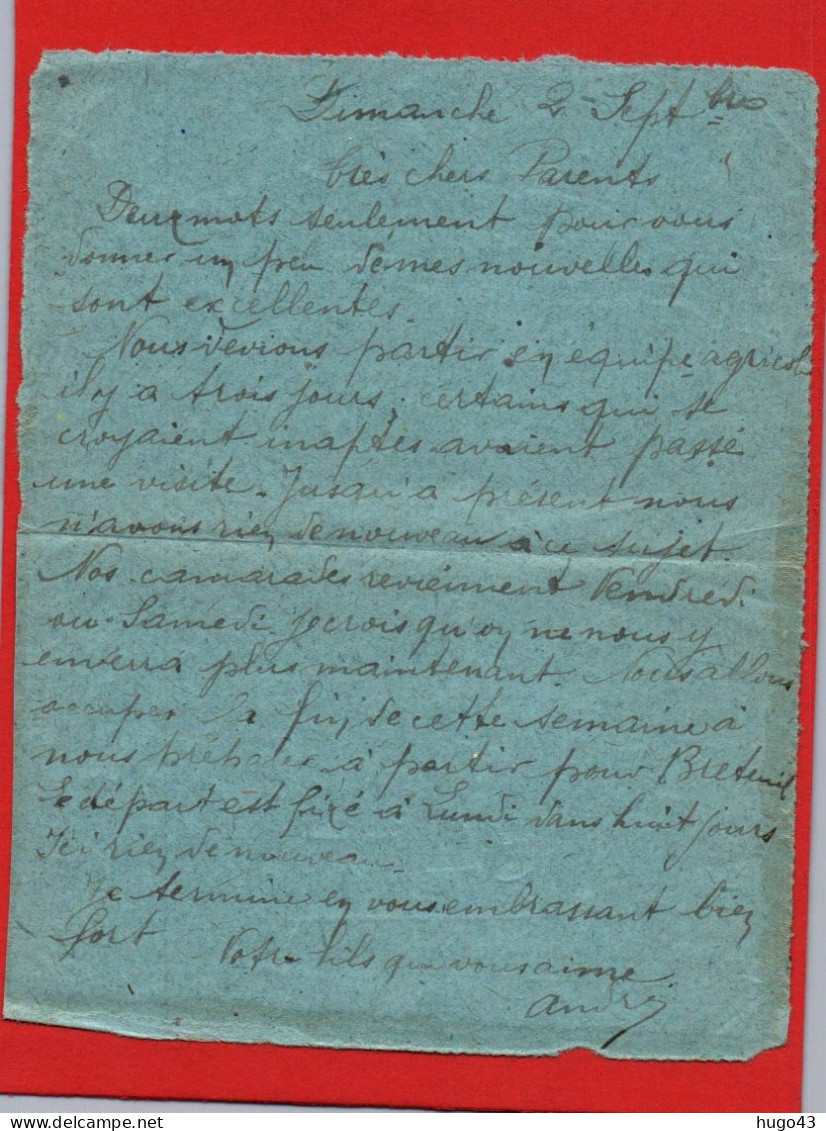 Dimanche 2 Sept bre
très chers Parents
Deux mots seulement pour vous
donner un peu de mes nouvelles qui
sont excellentes.
Nous devions partir en équipe agricole
il y a trois jours, certains qui se
croyaient inaptes avaient passé
une visite. Jusqu'à présent nous
n'avons rien de nouveau à ce sujet.
Nos camarades reviennent Vendredi
ou Samedi. je crois qu'on ne nous y
enverra plus maintenant. Nous allons
occuper la fin de cette semaine à
nous préparer à partir pour Breteuil
Le départ est fixé à Lundi dans huit jours
Ici rien de nouveau.
Je termine en vous embrassant bien
fort
Votre fils qui vous aime
André
hugo43